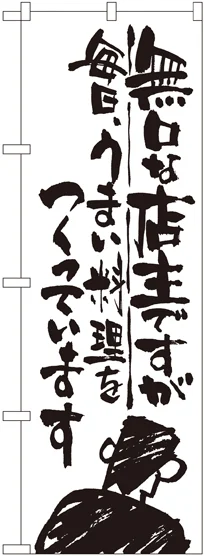 無口な店主ですが
毎日、うまい料理を
つくっています